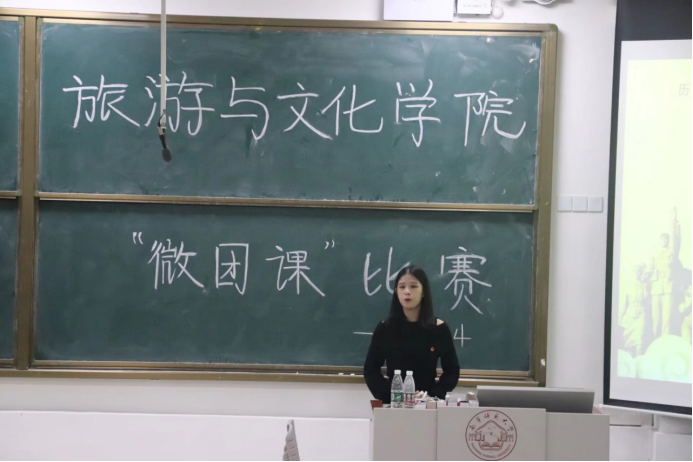 旅游与文化学院
“微团课”比赛
4
历